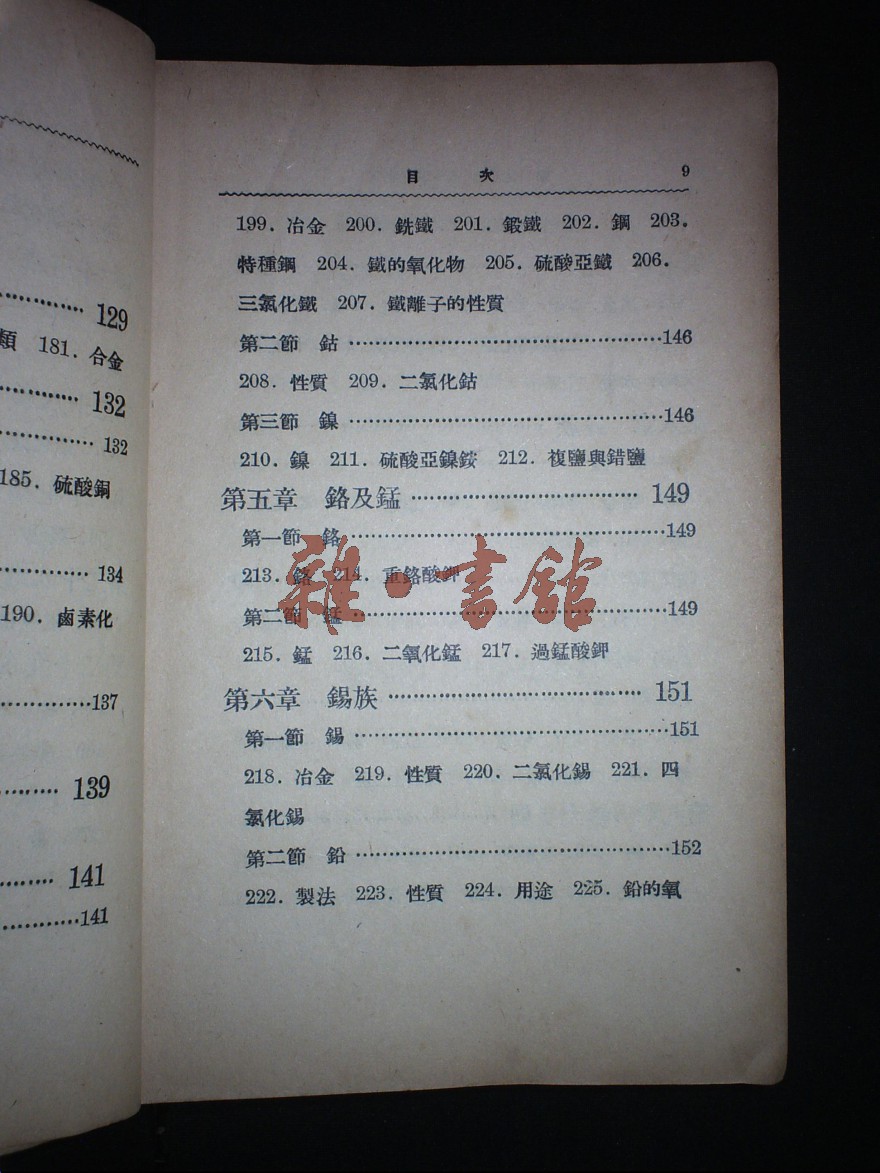 129
類 181．合金
132
132
185．硫酸銅
134
190．鹵素化
137
139
141
141
目 次 9
199．冶金 200．銑鐵 201．鍛鐵 202．鋼 203．
特種鋼 204．鐵的氧化物 205．硫酸亞鐵 206．
三氯化鐵 207．鐵離子的性質
第二節 鈷……………………………………146
208．性質 209．二氯化鈷
第三節 鎳……………………………………146
210．鎳 211．硫酸亞鎳銨 212．複鹽與錯鹽
第五章 鉻及錳…………………………149
第一節 鉻……………………………………149
213．鉻 214．重鉻酸鉀
第二節 錳……………………………………149
215．錳 216．二氧化錳 217．過錳酸鉀
第六章 錫族……………………………151
第一節 錫……………………………………151
218．冶金 219．性質 220．二氯化錫 221．四
氯化錫
第二節 鉛……………………………………152
222．製法 223．性質 224．用途 225．鉛的氧
雜·書館